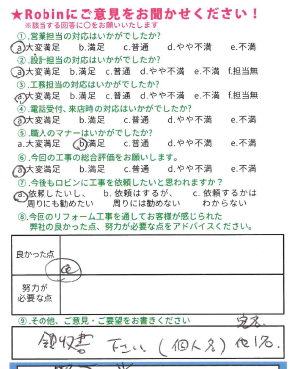 ★Robinにご意見をお聞かせください！
※該当する回答に○をお願いいたします
①.営業担当の対応はいかがでしたか?
a.大変満足 b.満足 c.普通 d.やや不満 e.不満
②.設計担当の対応はいかがでしたか?
a.大変満足 b.満足 c.普通 d.やや不満 e.不満 f.担当無
③.工務担当の対応はいかがでしたか?
a.大変満足 b.満足 c.普通 d.やや不満 e.不満 f.担当無
④.電話受付、来店時の対応はいかがでしたか?
a.大変満足 b.満足 c.普通 d.やや不満 e.不満
⑤.職人のマナーはいかがでしたか?
a.大変満足 b.満足 c.普通 d.やや不満 e.不満
⑥.今回の工事の総合評価をお願いします。
a.大変満足 b.満足 c.普通 d.やや不満 e.不満
⑦.今後もロビンに工事を依頼したいと思われますか?
a.依頼したいし、 b.依頼はするが、 c.依頼するかは
周りにも勧めたい 周りには勧めない わからない
⑧.今回のリフォーム工事を通してお客様が感じられた
弊社の良かった点、努力が必要な点をアドバイスください。
良かった点
努力が
必要な点
⑨.その他、ご意見・ご要望をお書きください
宛名
領収書 下さい (個人名) 他1名.